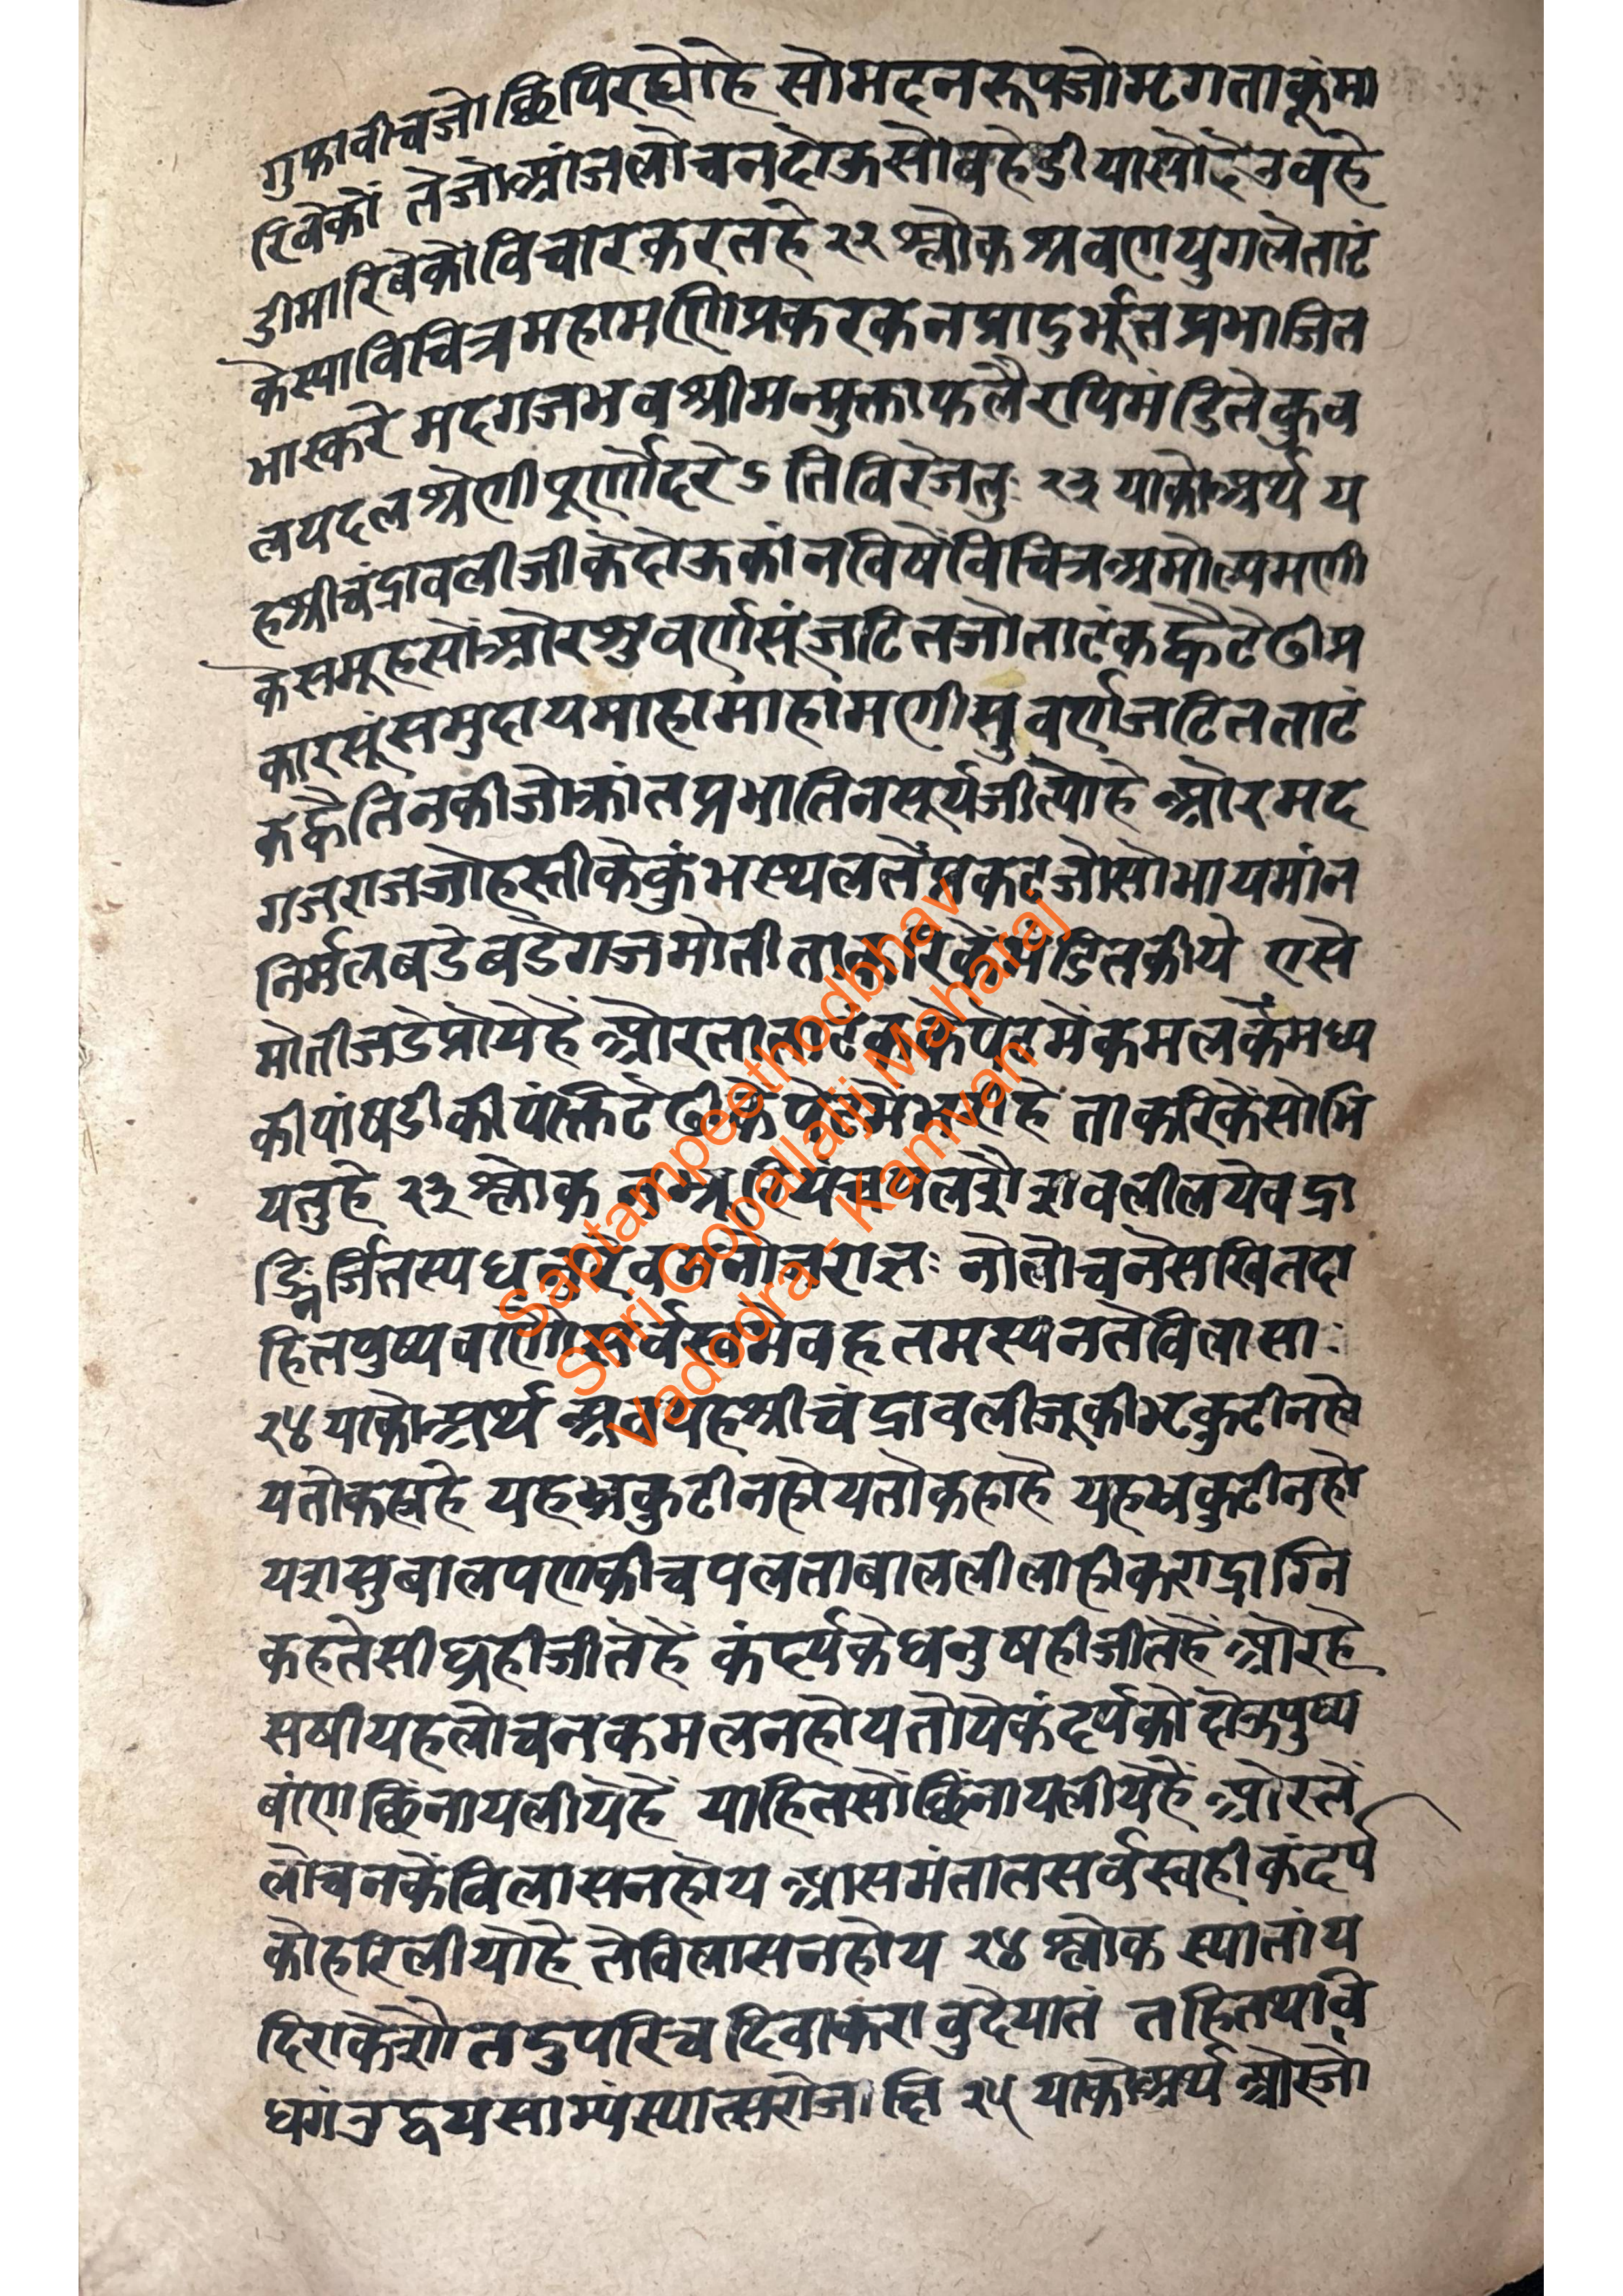 गुफावीचजोछिपिरह्योहे सोमदनरूपजोमृगताकूंमा
रिवेकों तेजोआंजलोचनदोऊसोवहेडीयासोदैउवहे
डीमारिबेकोविचारकरतहे २२ श्लोक श्रवणयुगलेताटं
केस्याविचित्रमहामणिप्रकरकनप्रादुर्भूतप्रभाजित
भास्करे मदगजभवश्रीमन्मुक्ताफलैरपिमंडितेकुव
लयदलश्रेणीपूर्णोदरे ऽ तिविरेजतुः २३ याकोअर्थ य
हश्रीचंद्रावलीजीकेदोऊकांनविषेंविचित्रअमोल्यमणी
केसमूहसोंओरशुवर्णसूंजटितजोताटंकह्वैटेढीप्र
कारसूंसमुदायमाहामांहामणीसुवर्णजटितताटं
कह्वैतिनकीजोकांतप्रभातिनसूर्यजीत्योहे ओरमद
गजराजजोहस्तीकेकुंभस्थलतेंप्रकटजोसोभायमांन
निर्मलबडेबडेगजमोतीताकरिकेंमंडितकीये एसे
मोतीजडेप्रोयेहैं ओरतीताटंककेपेटमेंकमलकेंमध्य
कीपांषडीकीपंक्तिटेढीकेपेटमेंभरीहे ताकरिकेंसोभि
यतुहे २३ श्लोक नभ्रूरियंचपलशैशवलीलयेवद्रा
ङ्निर्जितस्यधनुरेवमनोजराज्ञः नोलोचनेसखितदा
हितपुष्पवाणौसर्वस्वमेवहृतमस्यनतेविलासाः
२४ याकोअर्थ अबयहश्रीचंद्रावलीजूकीभृकुटीनहो
यतोकहाहे यहभ्रकुटीनहोयतोकहाहै यहभ्रकुटीनहो
यशसुबालपणकीचपलताबाललीलाहीकराद्राग्नि
कहतेसीघ्रहीजीतेहैं कंदर्पकेधनुषहीजीतेहैं ओरहे
सषीयहलोचनकमलनहोयतोयेकंदर्पकोदोऊपुष्प
बांणछिंनायलीयेहैं याहितसोंछिंनायलीयेहैं ओरतें
लोचनकेंविलासनहोय आसमंतातसर्वस्वहीकंदर्प
कोहरिलीयोहे तेविलासनहोय २४ श्लोक स्यातांय
दिराकेशौतदुपरिचदिवाकरावुदेयातं तर्हितथावि
धगंउद्वयसाम्यंस्यात्सरोजाक्षि २५ याकोअर्थ ओरजो
Saptampeethodbhav
Shri Gopallalji Maharaj
Vadodra - Kamvan